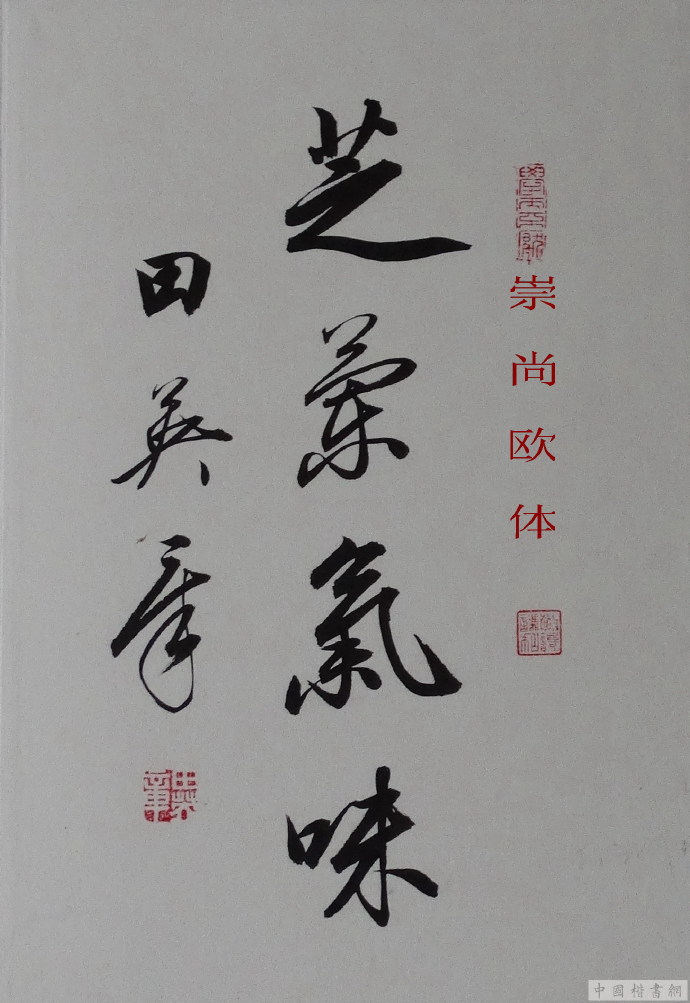 崇尚欧体
芝蘭氣味
田英章
英章
中國楷書網